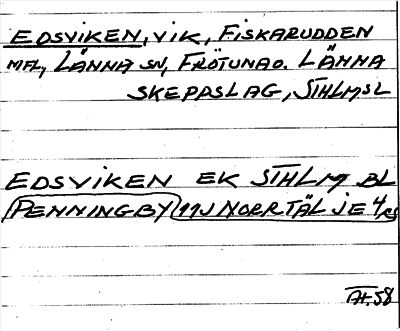 EDSVIKEN, VIK, FISKARUDDEN
MFL, LÄNNA SN, FRÖTUNA O. LÄNNA
SKEPPSLAG, STHLMSL
EDSVIKEN EK STHLM BL
PENNINGBY 11J NORRTÄLJE 4
58